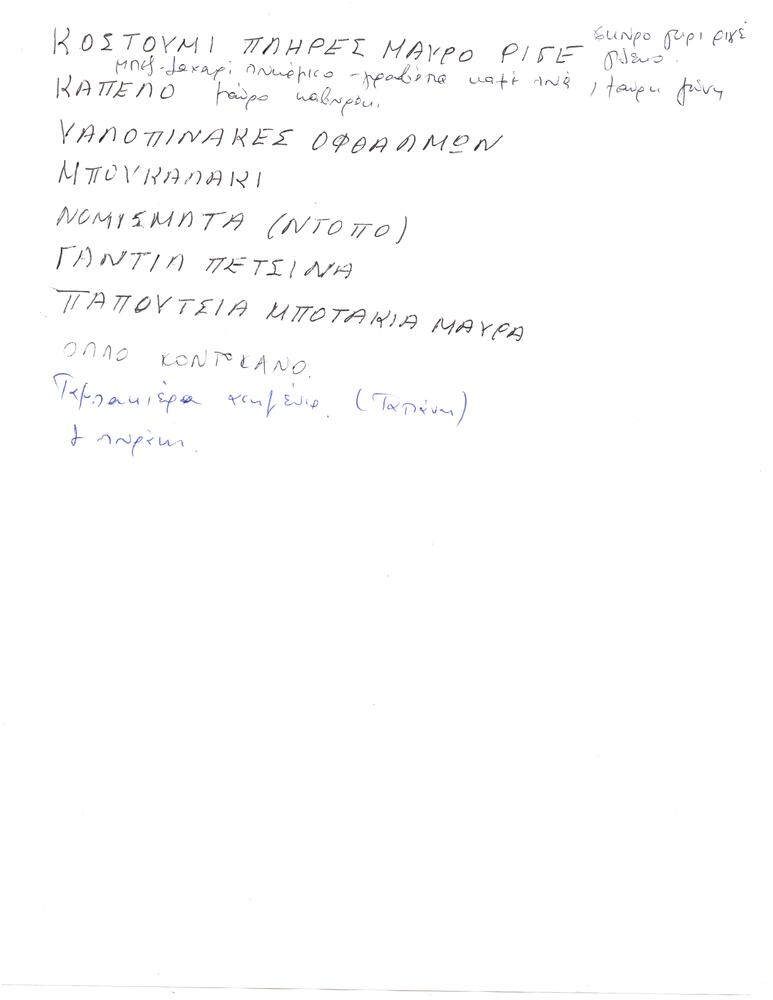 ΚΟΣΤΟΥΜΙ ΠΛΗΡΕΣ ΜΑΥΡΟ ΡΙΓΕ σκυρο γκρι ριγέ
μπεζ-ζαχαρί πουκάμισο - γραβάτα καφέ , μαύρη ζώνη
ΚΑΠΕΛΟ μαύρο καβουράκι.
ΥΑΛΟΠΙΝΑΚΕΣ ΟΦΘΑΛΜΩΝ
ΜΠΟΥΚΑΛΑΚΙ
ΝΟΜΙΣΜΑΤΑ (ΝΤΟΠΟ)
ΓΑΝΤΙΑ ΠΕΤΣΙΝΑ
ΠΑΠΟΥΤΣΙΑ ΜΠΟΤΑΚΙΑ ΜΑΥΡΑ
ΟΠΛΟ ΚΟΝΤΟΚΑΝΟ.
Ταμπακιέρα ασημένια. (Ταπάνη)